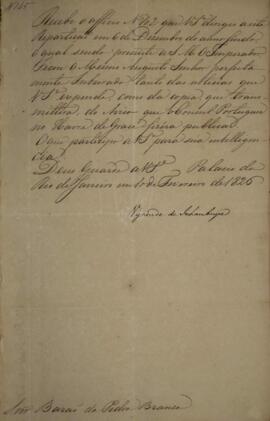 Recebi o officio Nº 2 que V Sª dirigio a esta
Repartição em 6 de Dezembro do anno findo
o qual sendo presente a S. M. O Imperador
Ficou O Mesmo Augusto Senhor perfeita
mente Inteirado tanto das noticias que
V Sª expende, como da copia, que trans
mettera, do Aviso que o Consul Portuguez
no Havre de Grace fizera publicar.
O que participo a V Sª para sua intelligen
cia.
Deus Guarde a V Sª Palacio do
Rio de Janeiro em de Fevereiro de 1825
Visconde de Inhambupe
Senr Barão da Pedra Branca